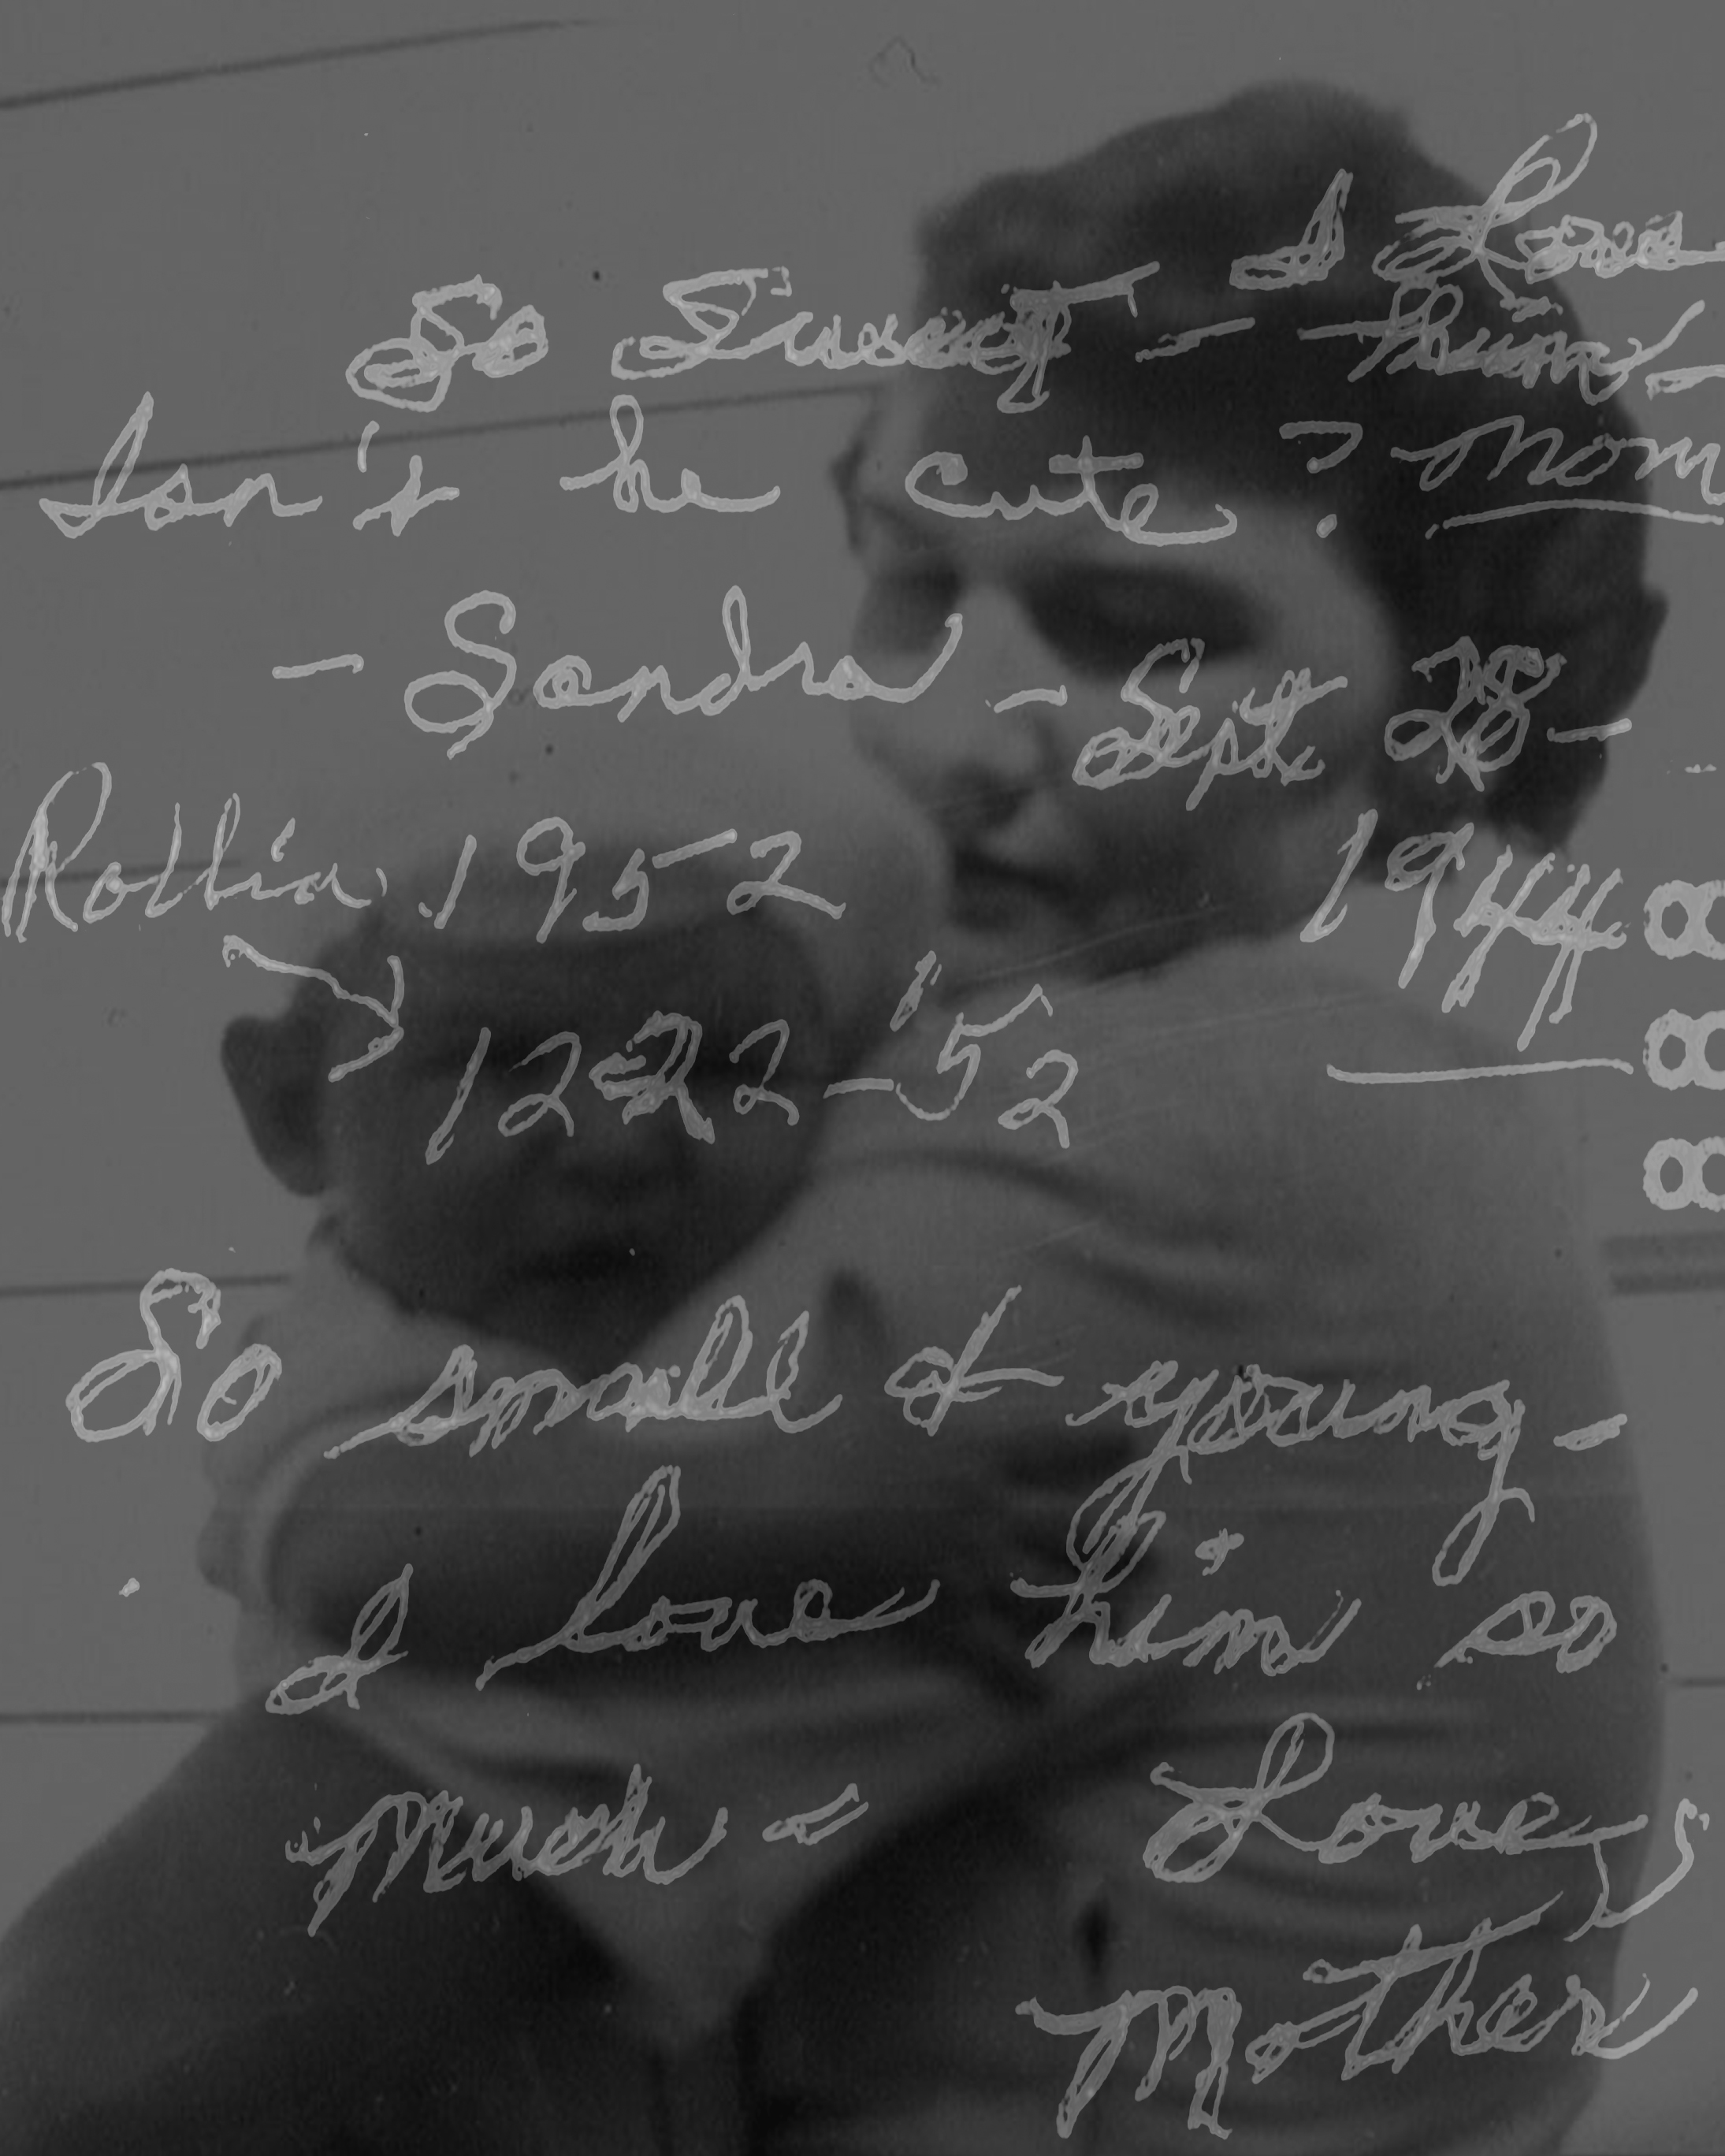 So Sweet - I Love
him -
Isn't he cute? Mom
- Sandra - Sept 28 -
Rollin 1952 1944
8
1222-'52
8
8
So small & young -
I love him so
much - Love,
Mother